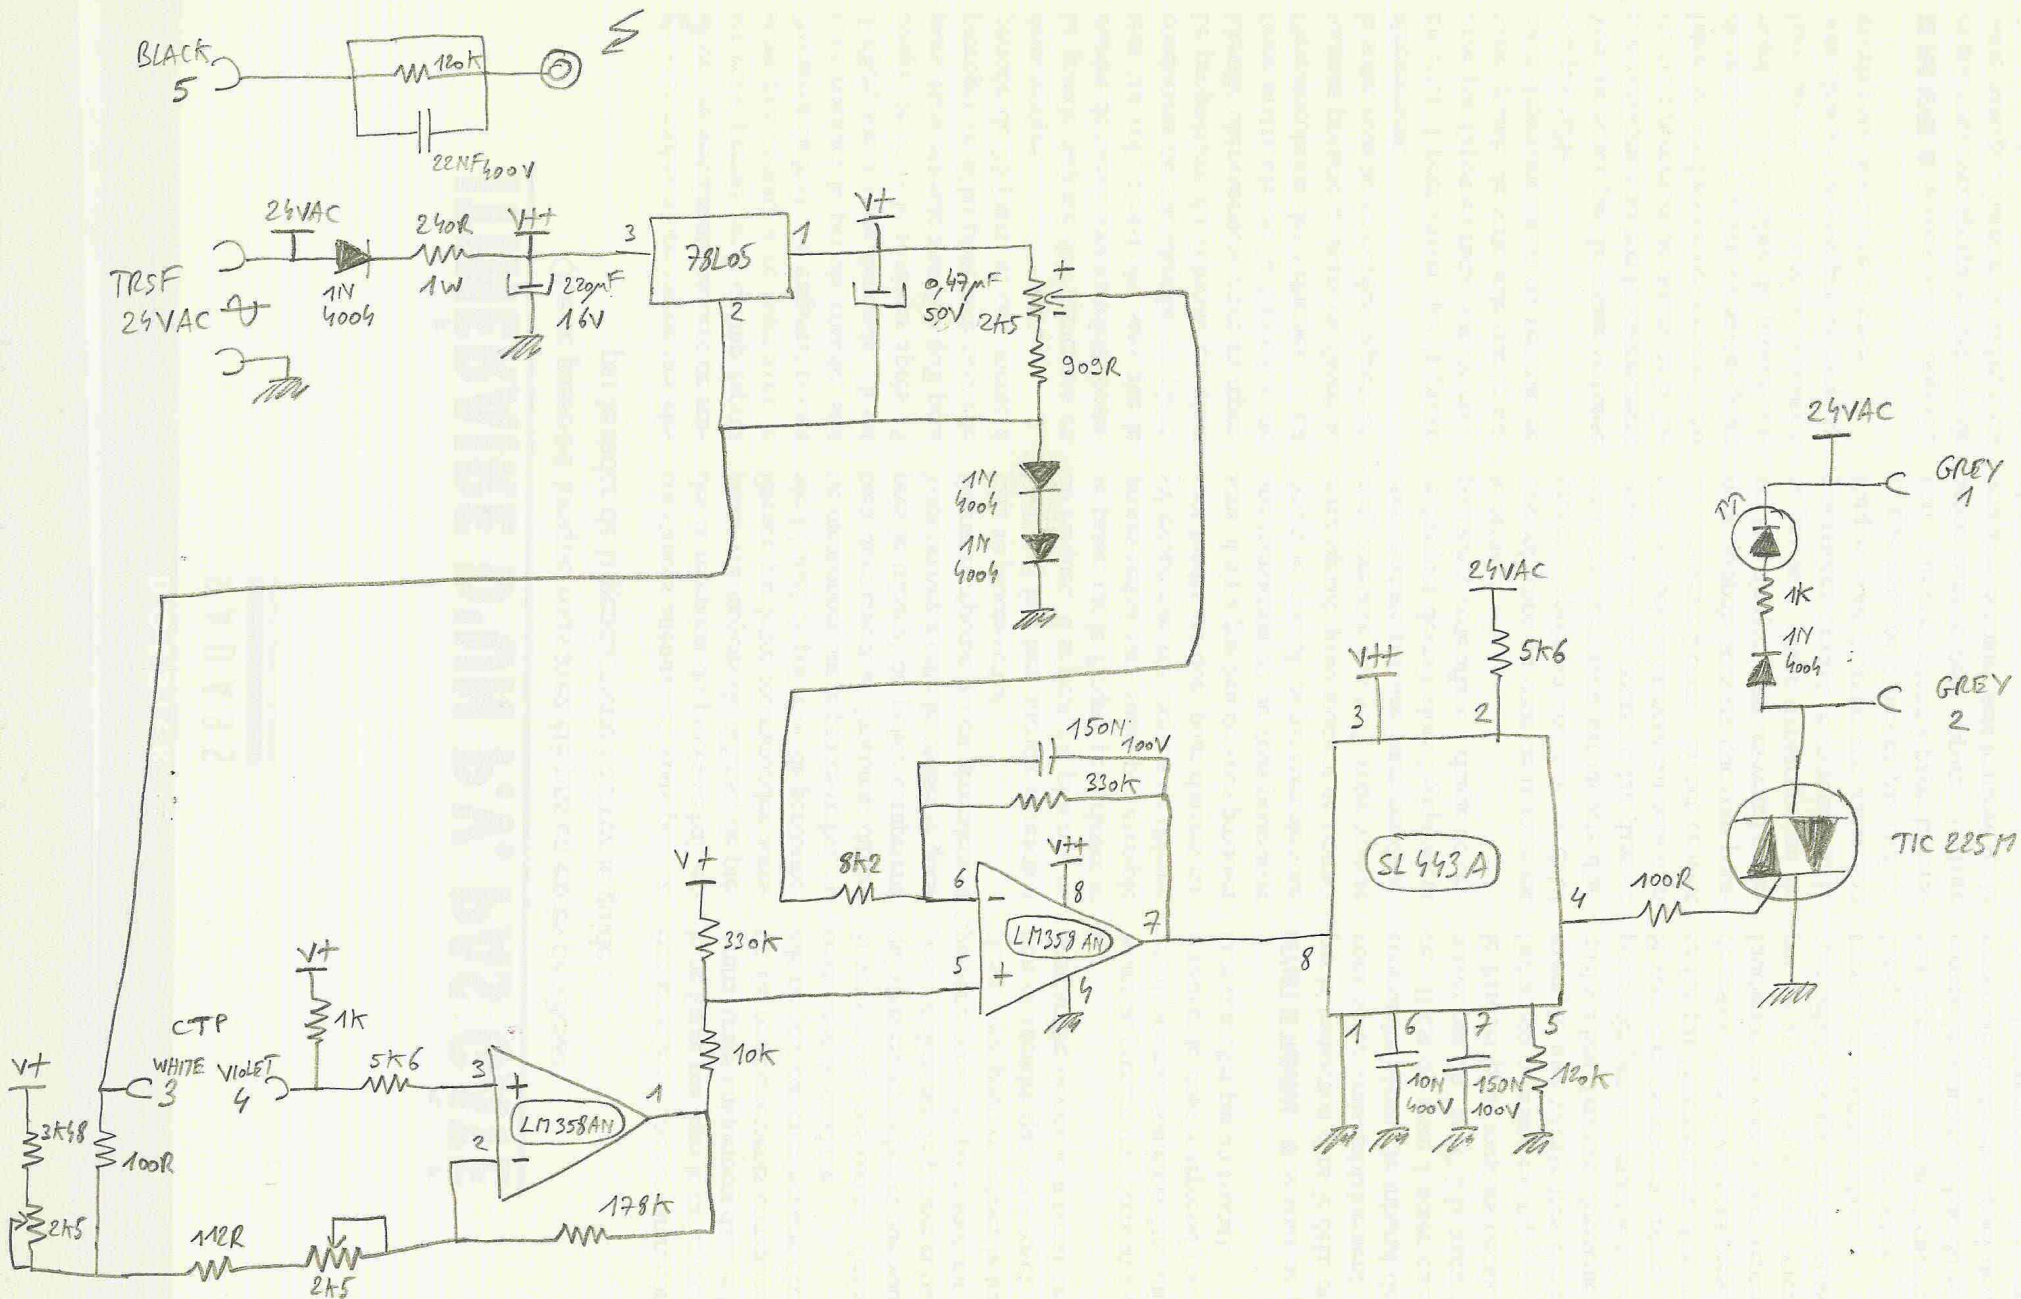 BLACK
5
120K
22NF 400V
24VAC
TRSF
24VAC
1N
4004
240R
1W
V++
220µF
16V
3
78L05
1
2
V+
0,47µF
50V
+
2K5
-
909R
1N
4004
1N
4004
24VAC
GREY
1
1K
1N
4004
GREY
2
TIC 225M
24VAC
5K6
V++
3
2
SL443A
4
100R
8
1
6
7
5
10N
400V
150N
100V
120K
150N
100V
330K
8K2
6
-
V++
8
LM358AN
7
5
+
4
V+
330K
10K
V+
1K
CTP
WHITE
3
VIOLET
4
5K6
3
+
LM358AN
1
2
-
178K
V+
3K48
2K5
100R
112R
2K5